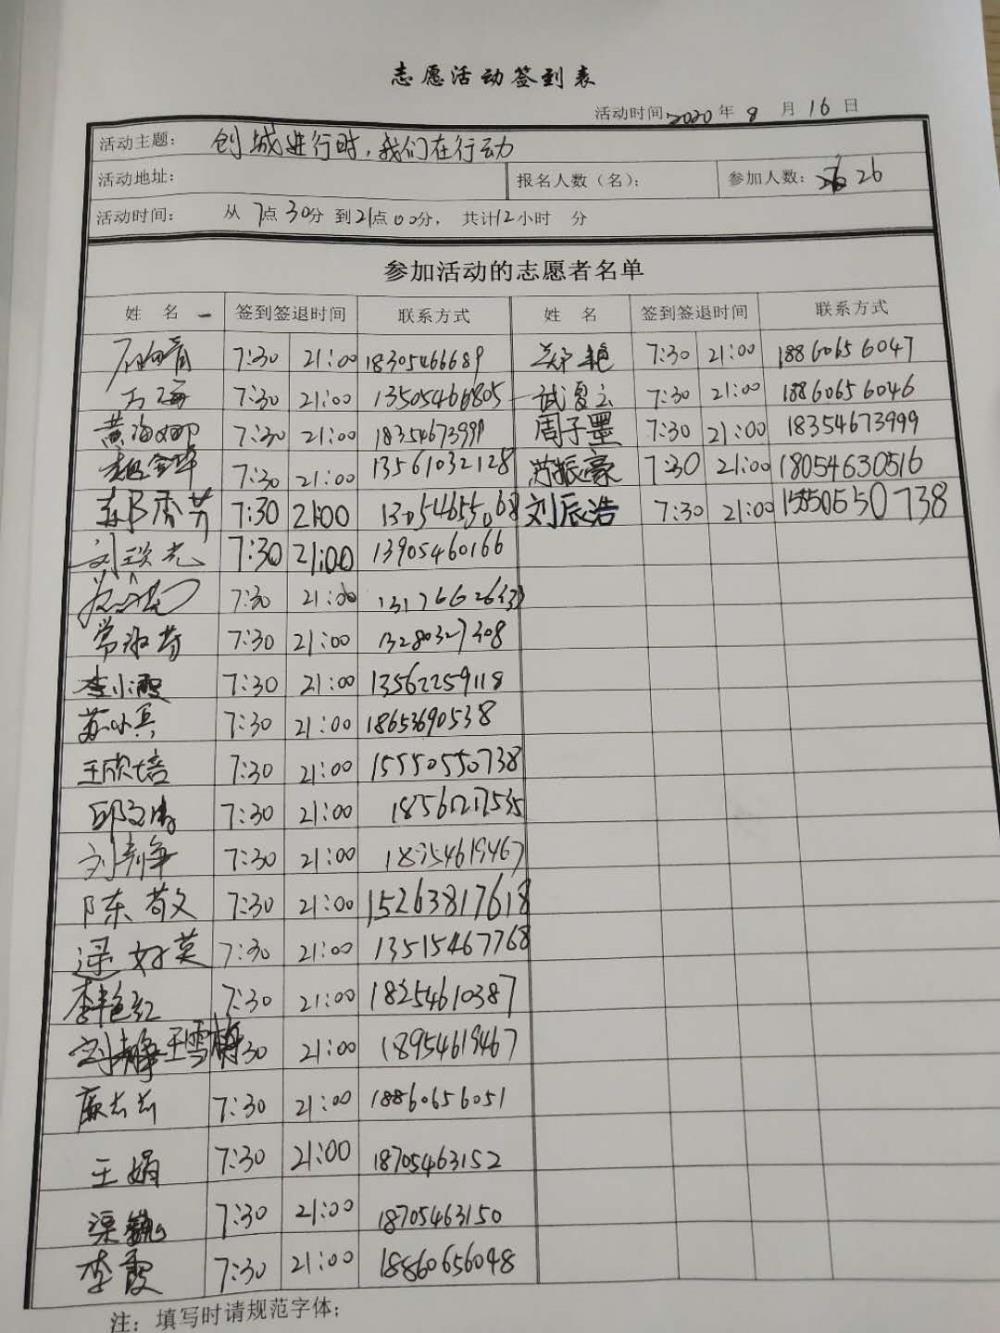 志愿活动签到表
活动时间 2020 年 8 月 16 日
活动主题： 创城进行时，我们在行动
活动地址： 报名人数（名）： 参加人数： 26
活动时间： 从 7点 30分 到 21点 00分， 共计12小时 分
参加活动的志愿者名单
姓 名 签到签退时间 联系方式 姓 名 签到签退时间 联系方式
7:30 21:00 18305466689 郑艳 7:30 21:00 18860656047
万海 7:30 21:00 13505466805 试夏云 7:30 21:00 18860656046
黄海娜 7:30 21:00 18354673999 周子墨 7:30 21:00 18354673999
7:30 21:00 13561032128 苏振豪 7:30 21:00 18054630516
7:30 21:00 13054655068 刘辰浩 7:30 21:00 15550550738
7:30 21:00 13905460166
7:30 21:00
常淑芳 7:30 21:00 13280327308
李小霞 7:30 21:00 13562259118
苏小宾 7:30 21:00 18653690538
王欣培 7:30 21:00 15550550738
7:30 21:00 18561217535
7:30 21:00 18954619467
陈敬文 7:30 21:00 15263817618
梁好英 7:30 21:00 13515467768
李艳红 7:30 21:00 18254610387
王雪梅 7:30 21:00 18954619467
7:30 21:00 18860656051
王娟 7:30 21:00 18705463152
渠巍 7:30 21:00 18705463150
李霞 7:30 21:00 18860656048
注：填写时请规范字体；